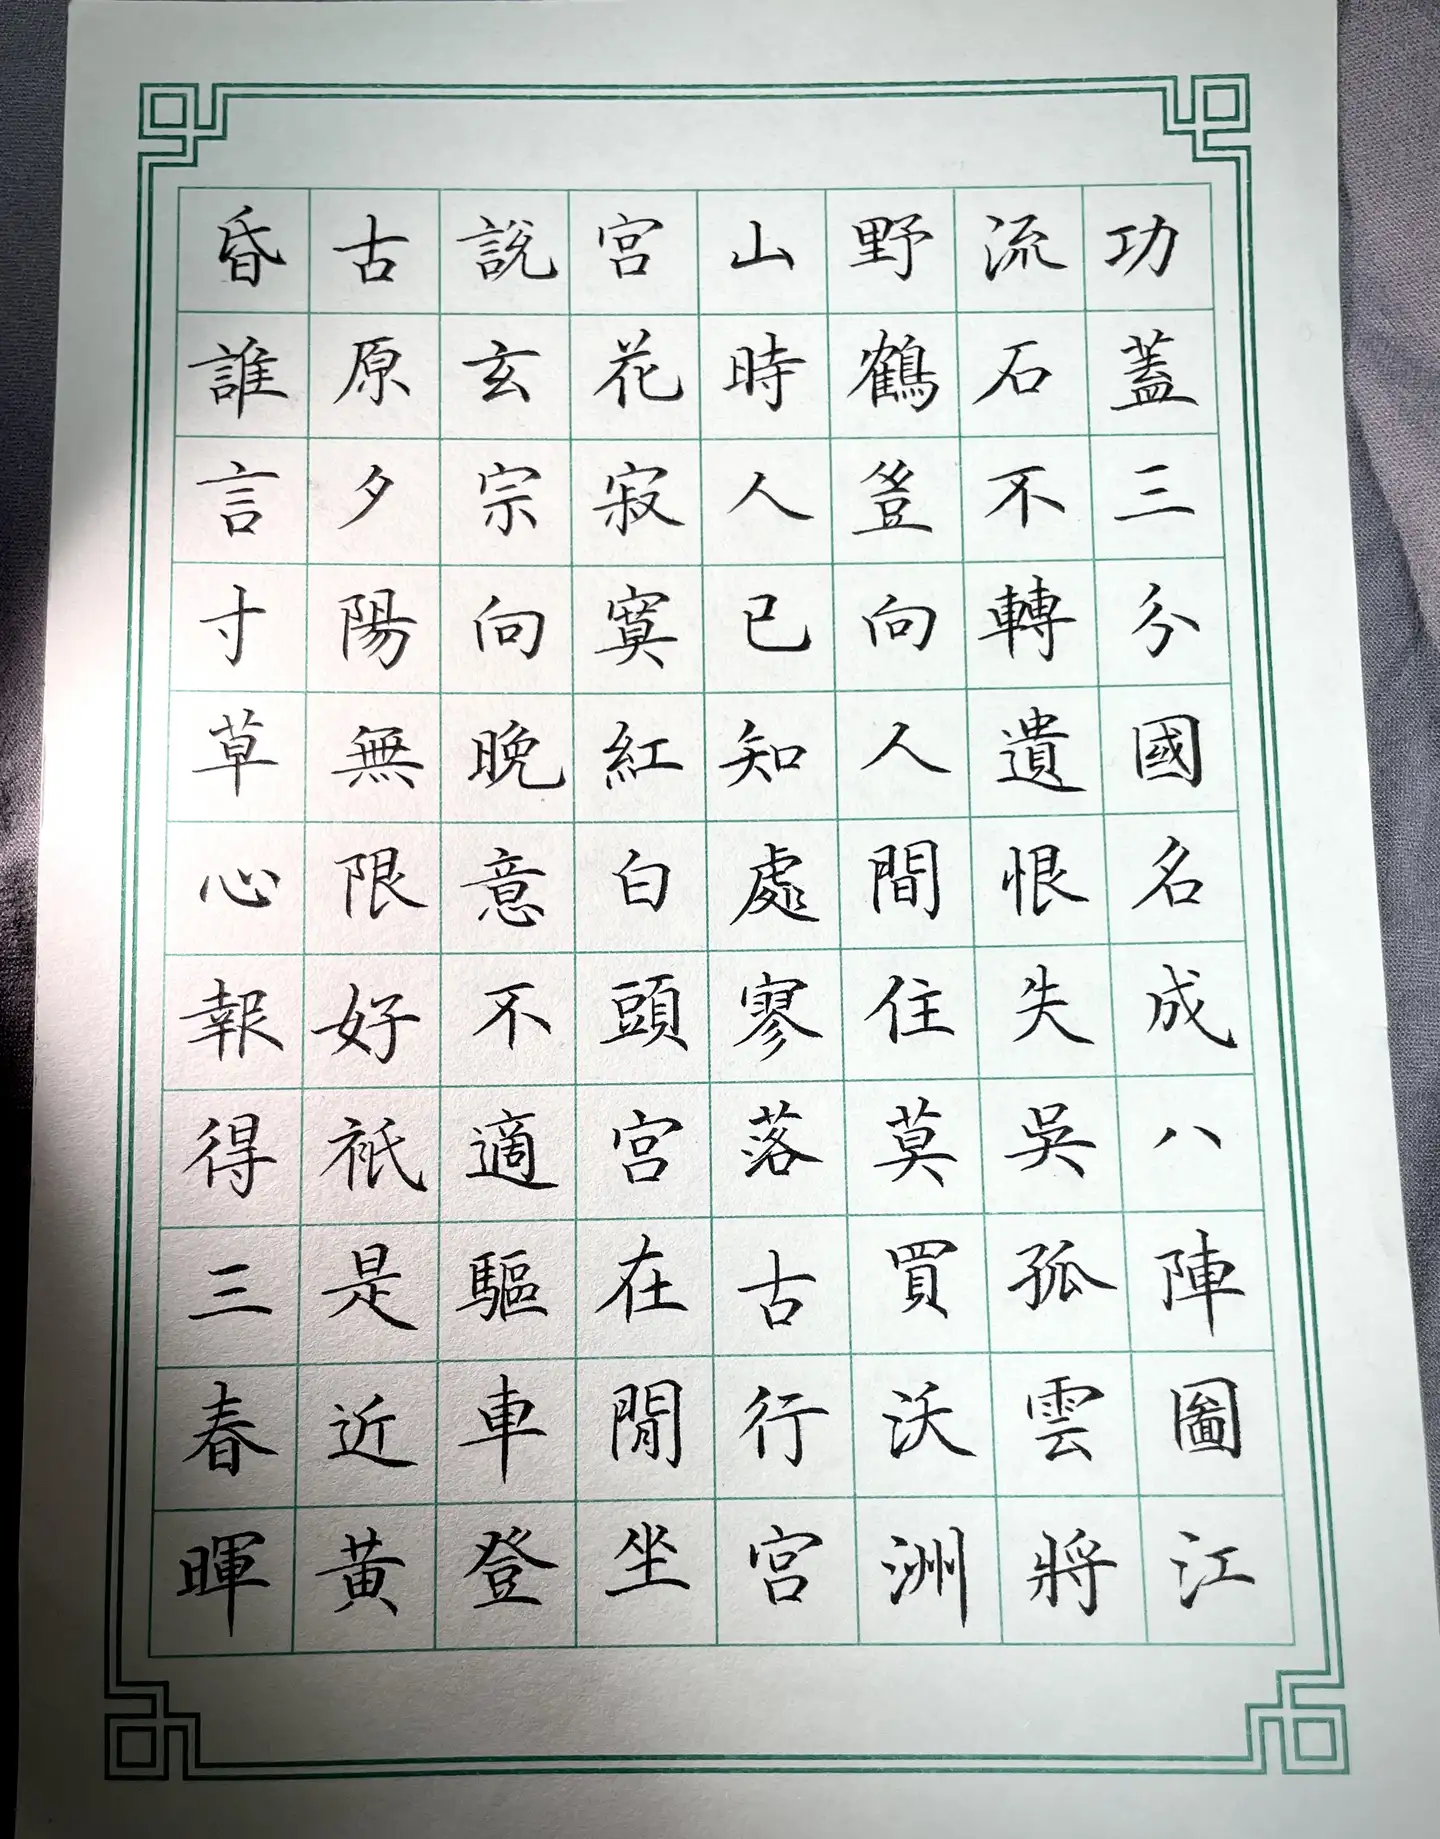 功蓋三分國名成八陣圖江
流石不轉遺恨失吳孤雲將
野鶴豈向人間住莫買沃洲
山時人已知處寥落古行宮
宮花寂寞紅白頭宮在閒坐
說玄宗向晚意不適驅車登
古原夕陽無限好祇是近黃
昏誰言寸草心報得三春暉